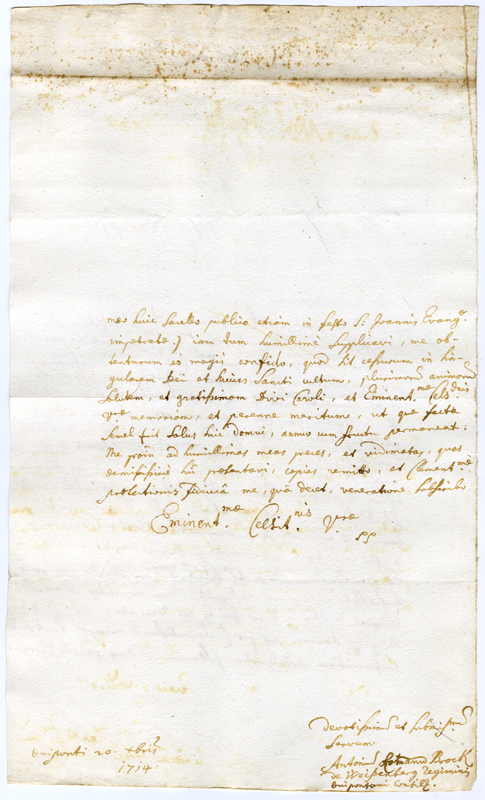 meo huic sacello publico etiam in festo S. Joannis Evangᵉ.
impetratæ) iam tum humillimè supplicavi, me ob-
tenturum eo magis confido, quod sit cessurum in sin-
gularem Dei et huius Sancti cultum, plurimorum animarum
salutem, et gratissimam Divi Caroli, et Eminent.ᵐᵃᵉ Cels.ᵈⁿⁱˢ
Vræ memoriam, et perenne meritum, ut quæ facta
semel sit salus huic domui, annuo cum fructu permaneat.
Me proin ad humillimas meas preces, et vidimatas, quas
demississimè præsentavi, copias remitto, et Clement.ᵐᵃᵉ
protectionis me, qua decet, veneratione subscribo
Eminent.ᵐᵃᵉ Celsit.ⁿⁱˢ Vræ
Devotissimus et submissus
servus
Œniponti 20. Xbris
Antonius Brock
1714.
de Weissenberg Regiminis
Œnipontani